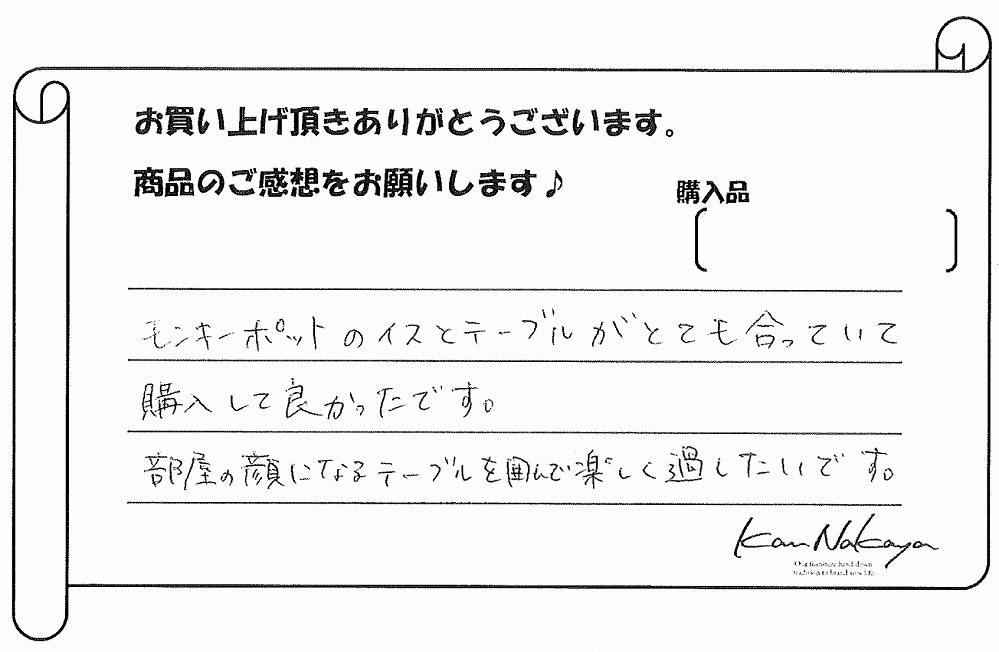 お買い上げ頂きありがとうございます。
商品のご感想をお願いします♪
購入品
モンキーポットのイスとテーブルがとても合っていて
購入して良かったです。
部屋の顔になるテーブルを囲んで楽しく過したいです。
Kan Nakaya
Our furniture hand down
tradition to brand new life.